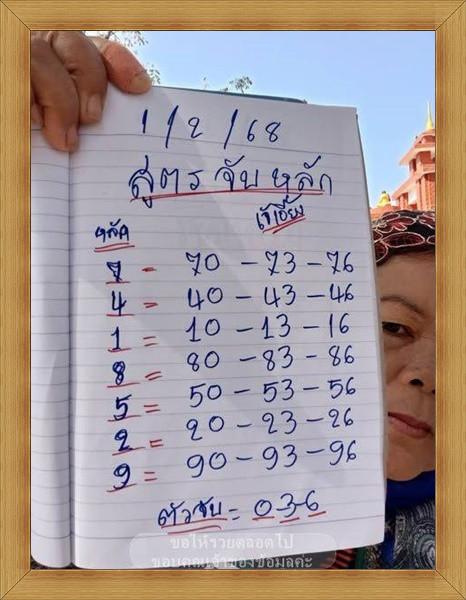 1/2/68
สูตรจับหลัก
เจ๊เอี้ยง
หลัก
7 = 70 - 73 - 76
4 = 40 - 43 - 46
1 = 10 - 13 - 16
8 = 80 - 83 - 86
5 = 50 - 53 - 56
2 = 20 - 23 - 26
9 = 90 - 93 - 96
ตัวจับ = 0-3-6
ขอให้รวยตลอดไป
ขอบคุณเจ้าของข้อมูลค่ะ